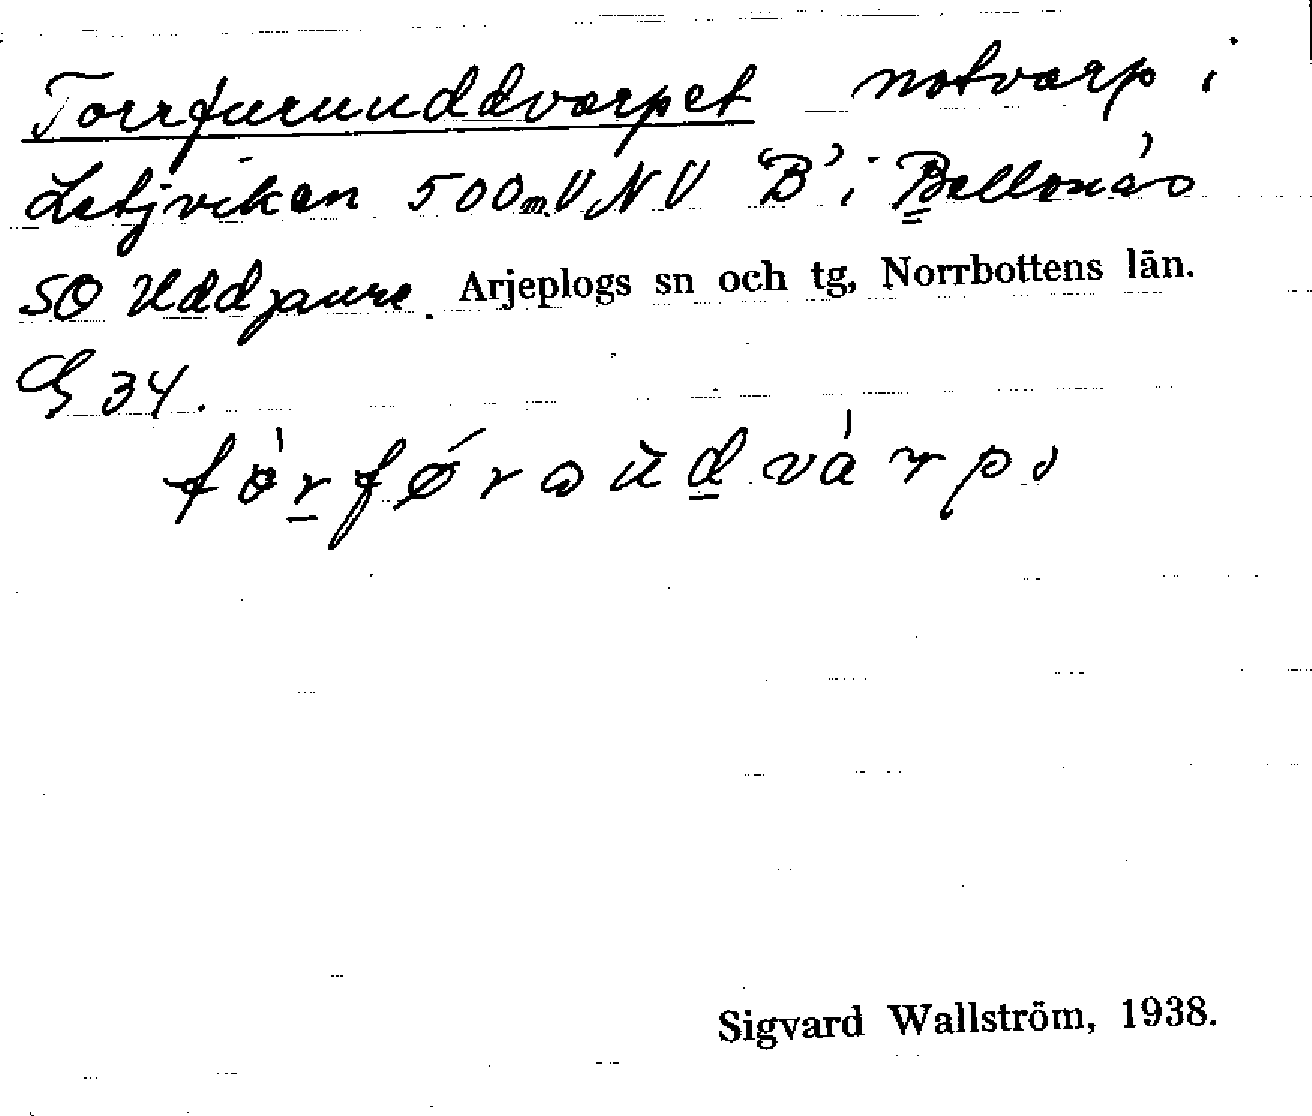 Torrfuruuddvarpet notvarp i
Letjviken 500m VNV "B" i Bellonäs
SO Uddjaure. Arjeplogs sn och tg, Norrbottens län.
G 34.
Sigvard Wallström, 1938.